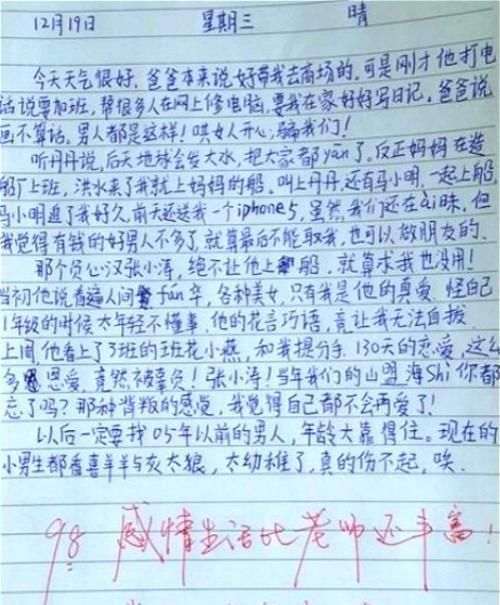 12月19日 星期三 晴
今天天气很好，爸爸本来说好带我去商场的，可是刚才他打电
话说要加班，帮很多人在网上修电脑，要我在家好好写日记。爸爸说
画不算话。男人都是这样！哄女人开心，骗我们！
听丹丹说，后天地球会发大水，把大家都yān了。反正妈妈在造
船厂上班，洪水来了我就上妈妈的船。叫上丹丹，还有马小明，一起上船，
马小明追了我好久，前天还送我一个iphone5，虽然我们还在ài昧，但
我觉得有钱的好男人不多了，就算最后不能取我，也可以做朋友的。
那个负心汉张小涛，绝不让他上船，就算求我也没用！
当初他说看遍人间fán华，各种美女，只有我是他的真爱，怪自己
1年级的时候太年轻不懂事，他的花言巧语，竟让我无法自拔
上周，他看上了3班的班花小燕，和我提分手，130天的恋爱，这么
多恩爱，竟然被辜负！张小涛！当年我们的山盟海Shi你都
忘了吗？那种背叛的感觉，我觉得自己都不会再爱了！
以后一定要找05年以前的男人，年龄大靠得住。现在的
小男生都看喜羊羊与灰太狼，太幼稚了，真的伤不起，唉。
98 感情生活比老师还丰富！